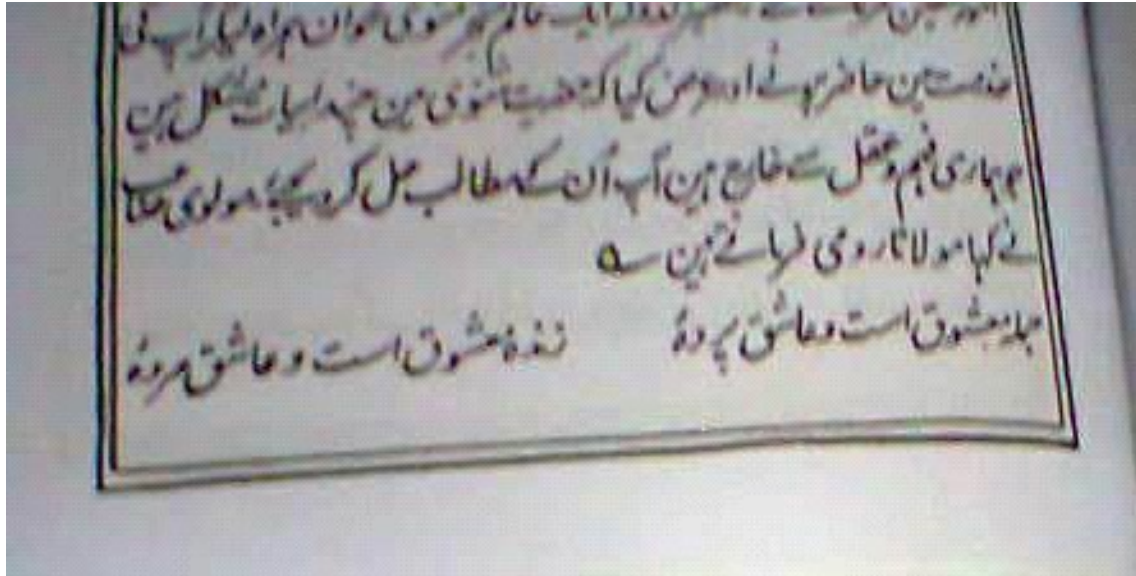 ایک عالم مثنوی خوان ہمراہ لیکر آپ کی
خدمت مین حاضر ہوئے اور عرض کیا کہ حضرت مثنوی مین چند ابیات مشکل ہین
جو ہماری فہم و عقل سے خارج ہین آپ اُن کے مطالب حل کر دیجیے مولوی صاحب
نے کہا مولانا رومی فرماتے ہین ؎
جملہ معشوق است و عاشق پردۂ زندہ معشوق است و عاشق مردۂ